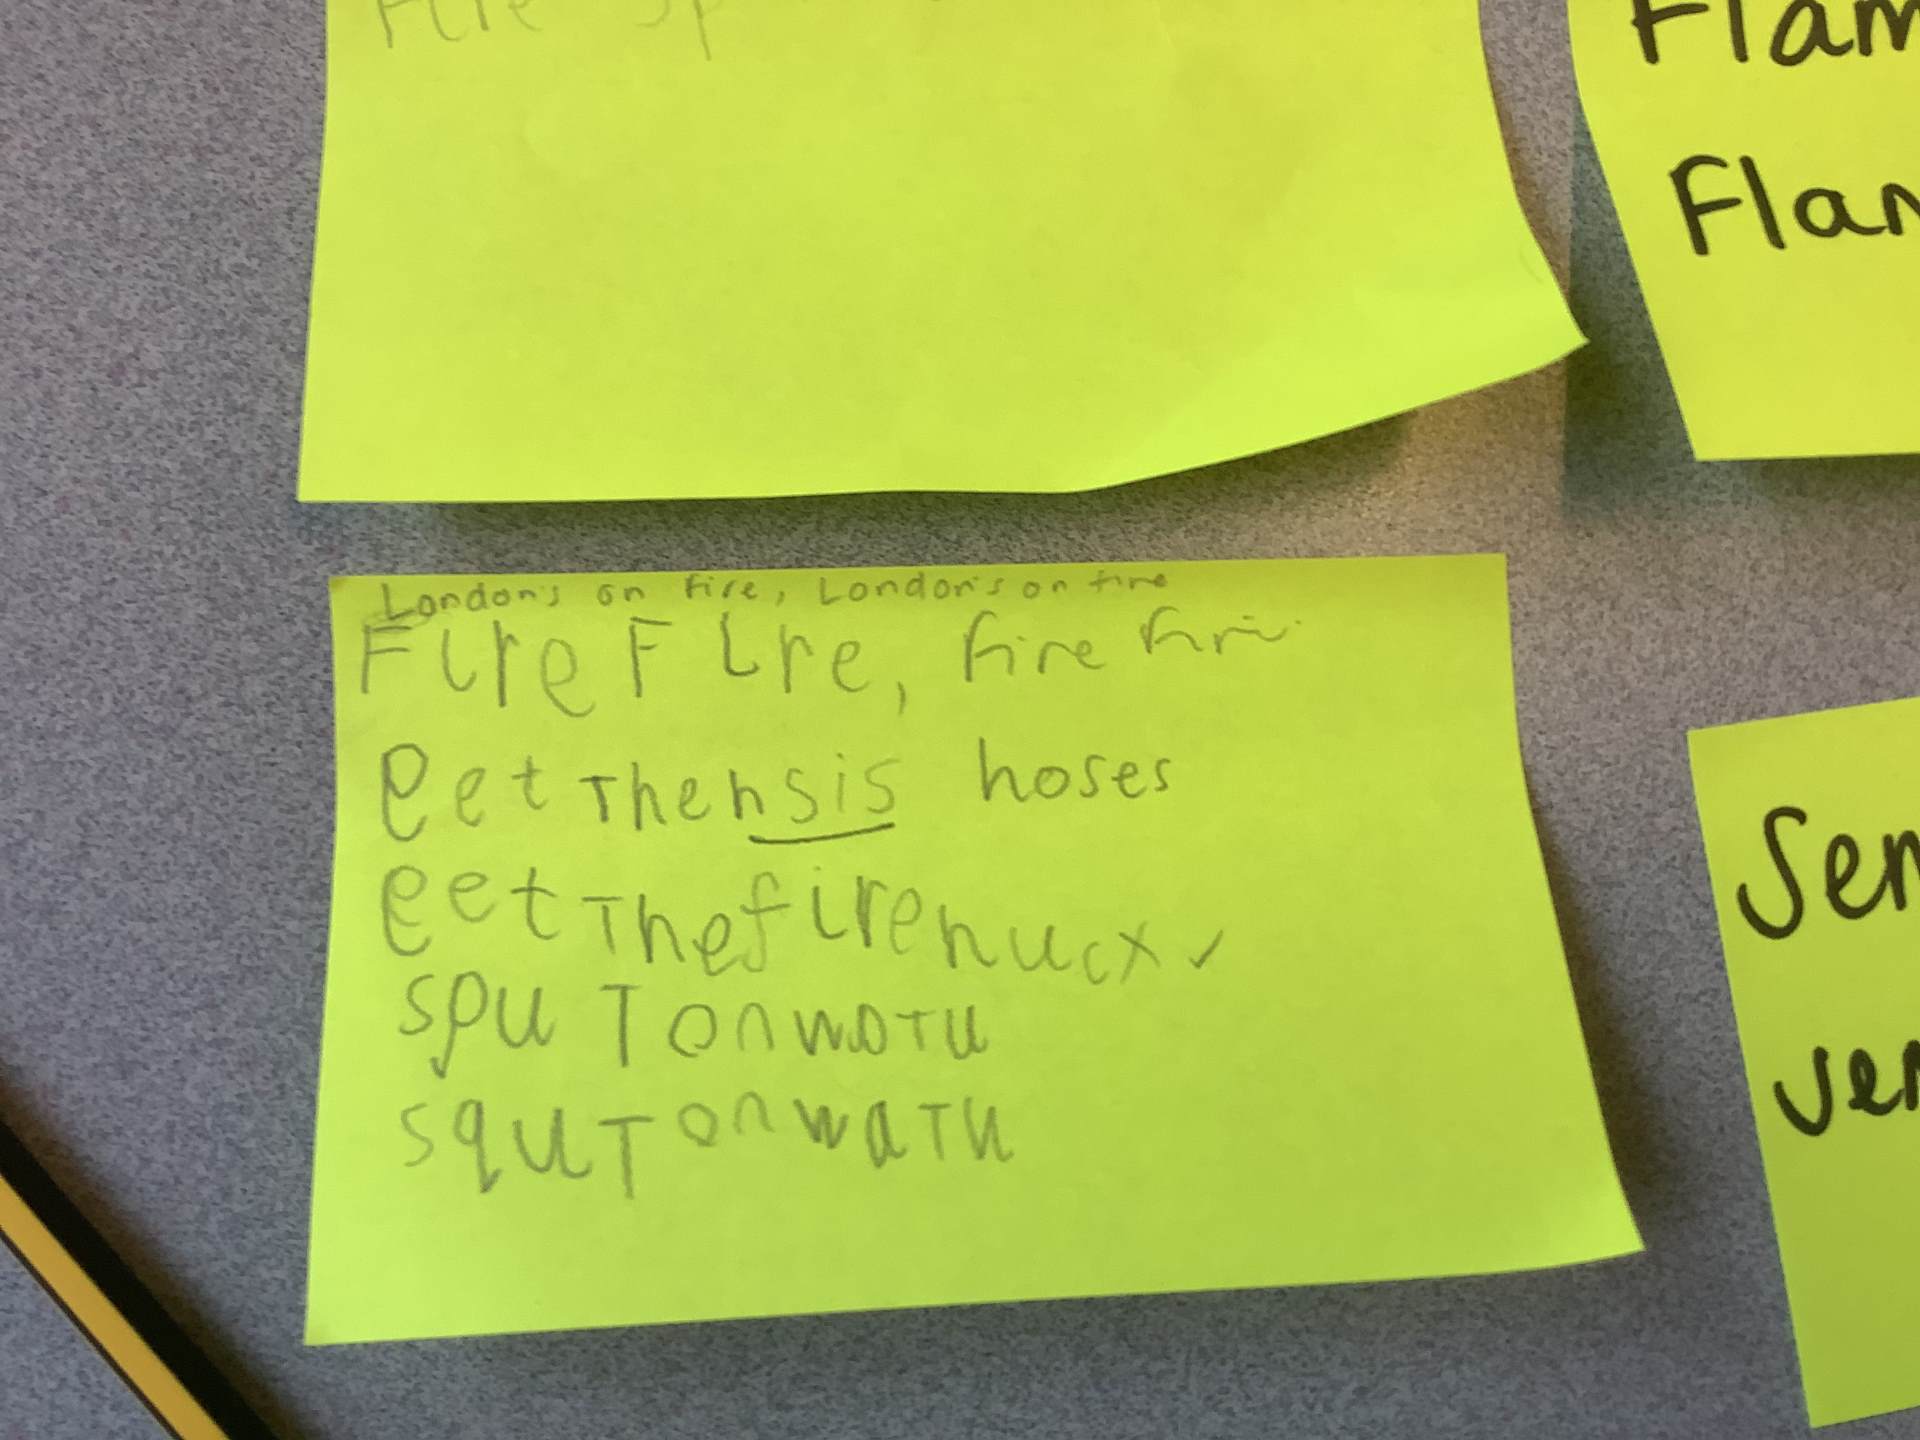 Fire sp
Flam
Flam
London's on fire, London's on fire
Fire Fire, fire fire
eet The hsis hoses
eet The fire hucx ✓
sput on wotu
squt on watu
Sen
sen